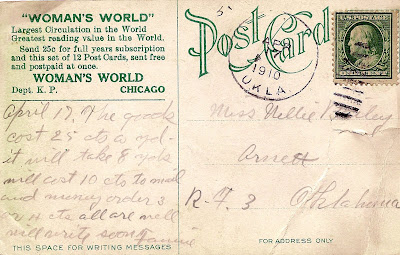 "WOMAN'S WORLD"
Largest Circulation in the World
Greatest reading value in the World.
Send 25c for full years subscription
and this set of 12 Post Cards, sent free
and postpaid at once.
WOMAN'S WORLD
Dept. K. P. CHICAGO
Post Card
1910
OKLA
April 17, The goods
cost 25 cts a yd-
it will take 8 yds
will cost 10 cts to mail
and money order 3
cts all are well
will write soon
Fannie
THIS SPACE FOR WRITING MESSAGES
Miss Nellie
Arnett
R-F. 3 Oklahoma
FOR ADDRESS ONLY